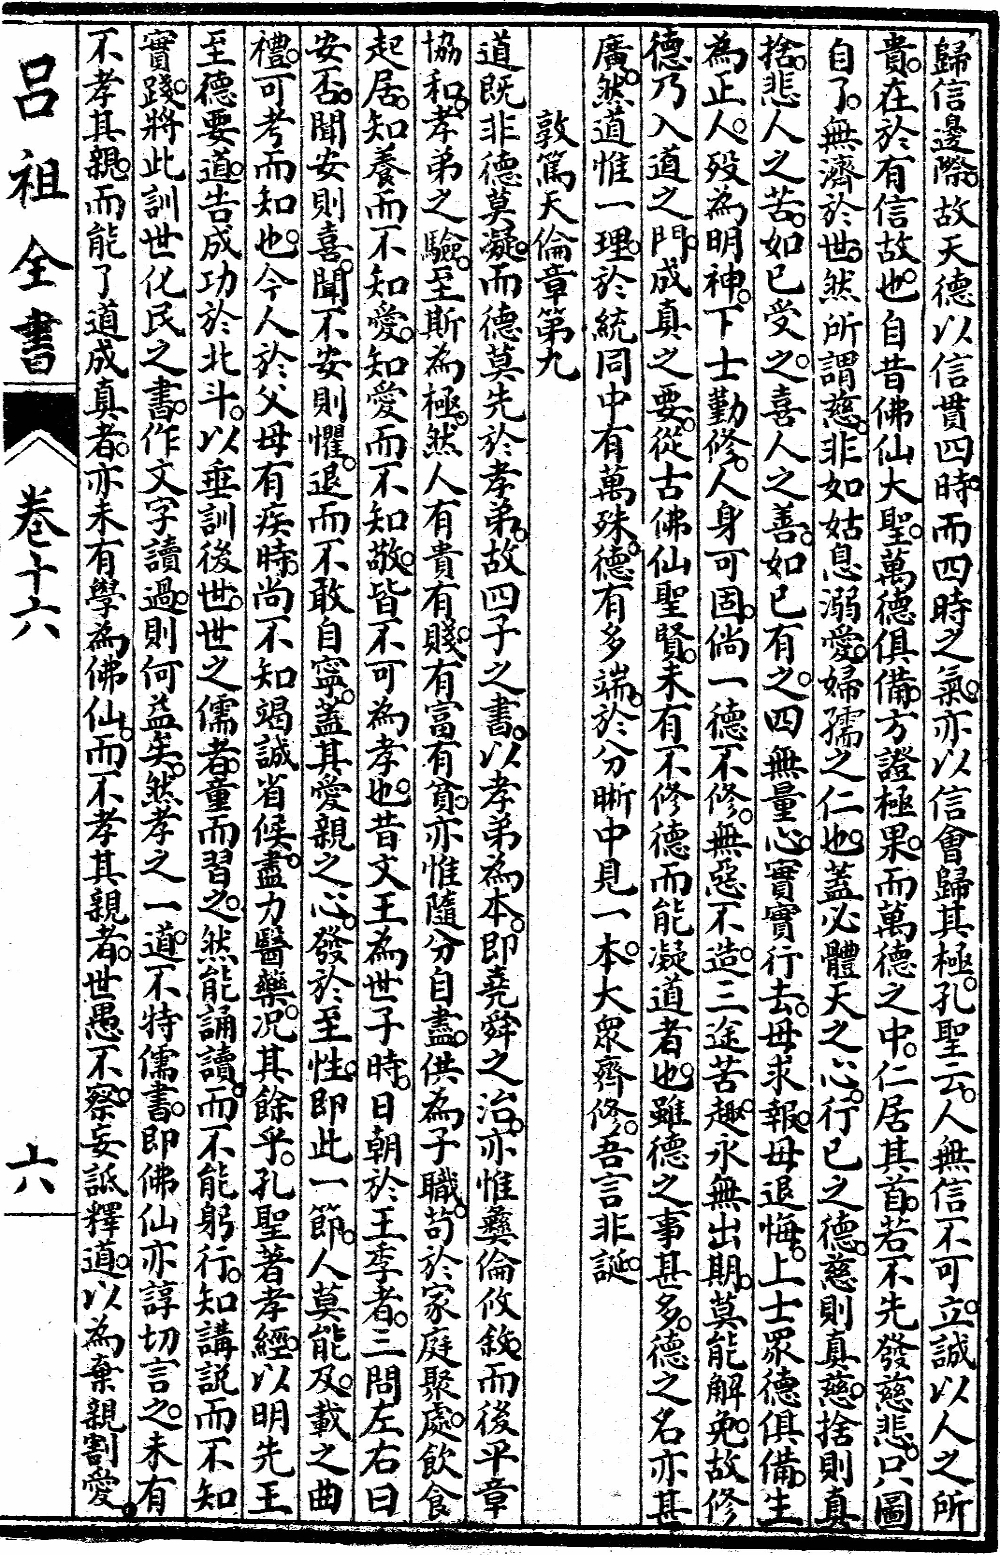 歸信邊際。故天德以信貫四時。而四時之氣。亦以信會歸其極。孔聖云。人無信不可立。誠以人之所
貴。在於有信故也。自昔佛仙大聖。萬德俱備。方證極果。而萬德之中。仁居其首。若不先發慈悲。只圖
自了。無濟於世。然所謂慈。非如姑息溺愛。婦孺之仁也。蓋必體天之心。行已之德。慈則真慈。捨則真
捨。悲人之苦。如已受之。喜人之善。如已有之。四無量心。實實行去。毋求報。毋退悔。上士眾德俱備。生
為正人。歿為明神。下士勤修。人身可固。倘一德不修。無惡不造。三途苦趣。永無出期。莫能解免。故修
德乃入道之門。成真之要。從古佛仙聖賢。未有不修德而能凝道者也。雖德之事甚多。德之名亦甚
廣。然道惟一理。於統同中有萬殊。德有多端。於分晰中見一本。大眾齊修。吾言非誕。
敦篤天倫章第九
道既非德莫凝。而德莫先於孝弟。故四子之書。以孝弟為本。即堯舜之治。亦惟彝倫攸敘。而後平章
協和。孝弟之驗。至斯為極。然人有貴有賤。有富有貧。亦惟隨分自盡。供為子職。苟於家庭聚處。飲食
起居。知養而不知愛。知愛而不知敬。皆不可為孝也。昔文王為世子時。日朝於王季者。三問左右曰
安否。聞安則喜。聞不安則懼。退而不敢自寧。蓋其愛親之心。發於至性。即此一節。人莫能及。載之曲
禮。可考而知也。今人於父母有疾時。尚不知竭誠省候。盡力醫藥。况其餘乎。孔聖著孝經。以明先王
至德要道。告成功於北斗。以垂訓後世。世之儒者。童而習之。然能誦讀。而不能躬行。知講説而不知
實踐。將此訓世化民之書。作文字讀過。則何益矣。然孝之一道。不特儒書。即佛仙亦諄切言之。未有
不孝其親。而能了道成真者。亦未有學為佛仙。而不孝其親者。世愚不察。妄詆釋道。以為棄親割愛。
吕祖全書
卷十六
六